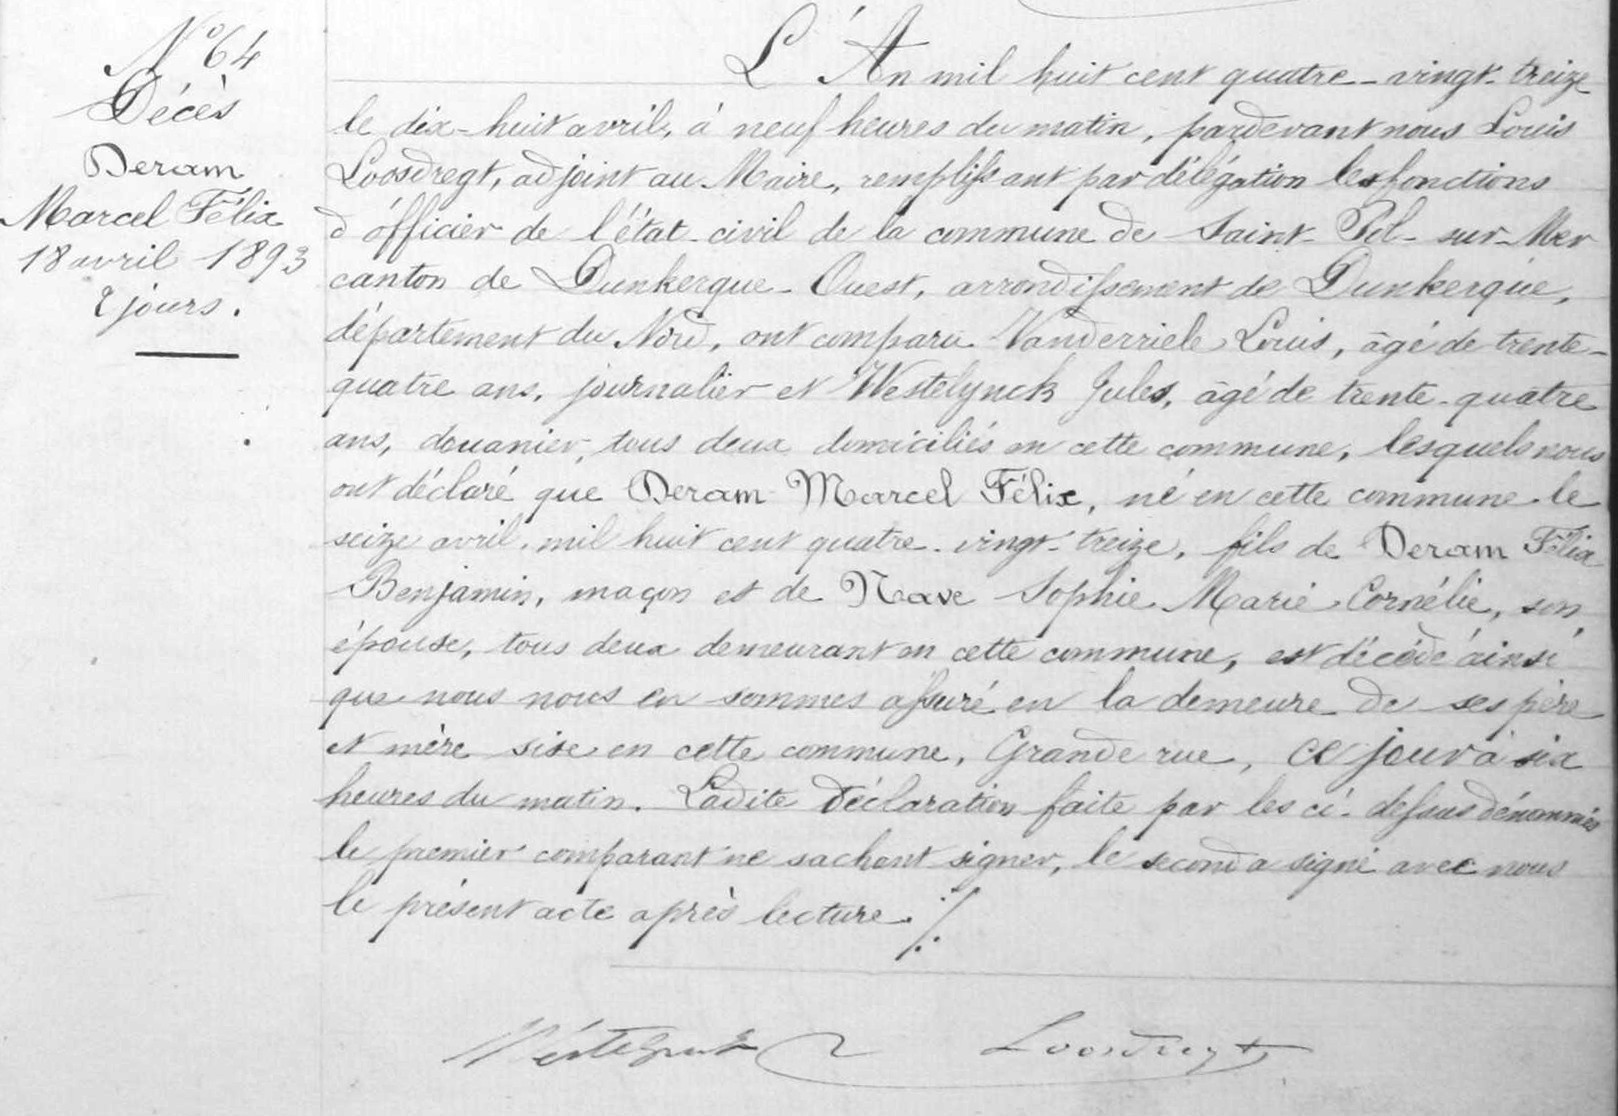 N° 64
Décès
Deram
Marcel Félix
18 avril 1893
2 jours.
L'An mil huit cent quatre-vingt-treize
le dix-huit avril, à neuf heures du matin, pardevant nous Louis
Loosdregt, adjoint au Maire, remplissant par délégation les fonctions
d'officier de l'état-civil de la commune de Saint-Pol-sur-Mer
canton de Dunkerque-Ouest, arrondissement de Dunkerque,
département du Nord, ont comparu Vanderriele Louis, âgé de trente-
quatre ans, journalier et Westelynck Jules, âgé de trente-quatre
ans, douanier, tous deux domiciliés en cette commune, lesquels nous
ont déclaré que Deram Marcel Félix, né en cette commune le
seize avril mil huit cent quatre-vingt-treize, fils de Deram Félix
Benjamin, maçon et de Nave Sophie Marie Cornélie, son
épouse, tous deux demeurant en cette commune, est décédé ainsi
que nous nous en sommes assuré en la demeure de ses père
et mère sise en cette commune, Grande rue, ce jour à six
heures du matin. Ladite déclaration faite par les ci-dessus dénommés
le premier comparant ne sachant signer, le second a signé avec nous
le présent acte après lecture ./.
Westelynck Loosdregt